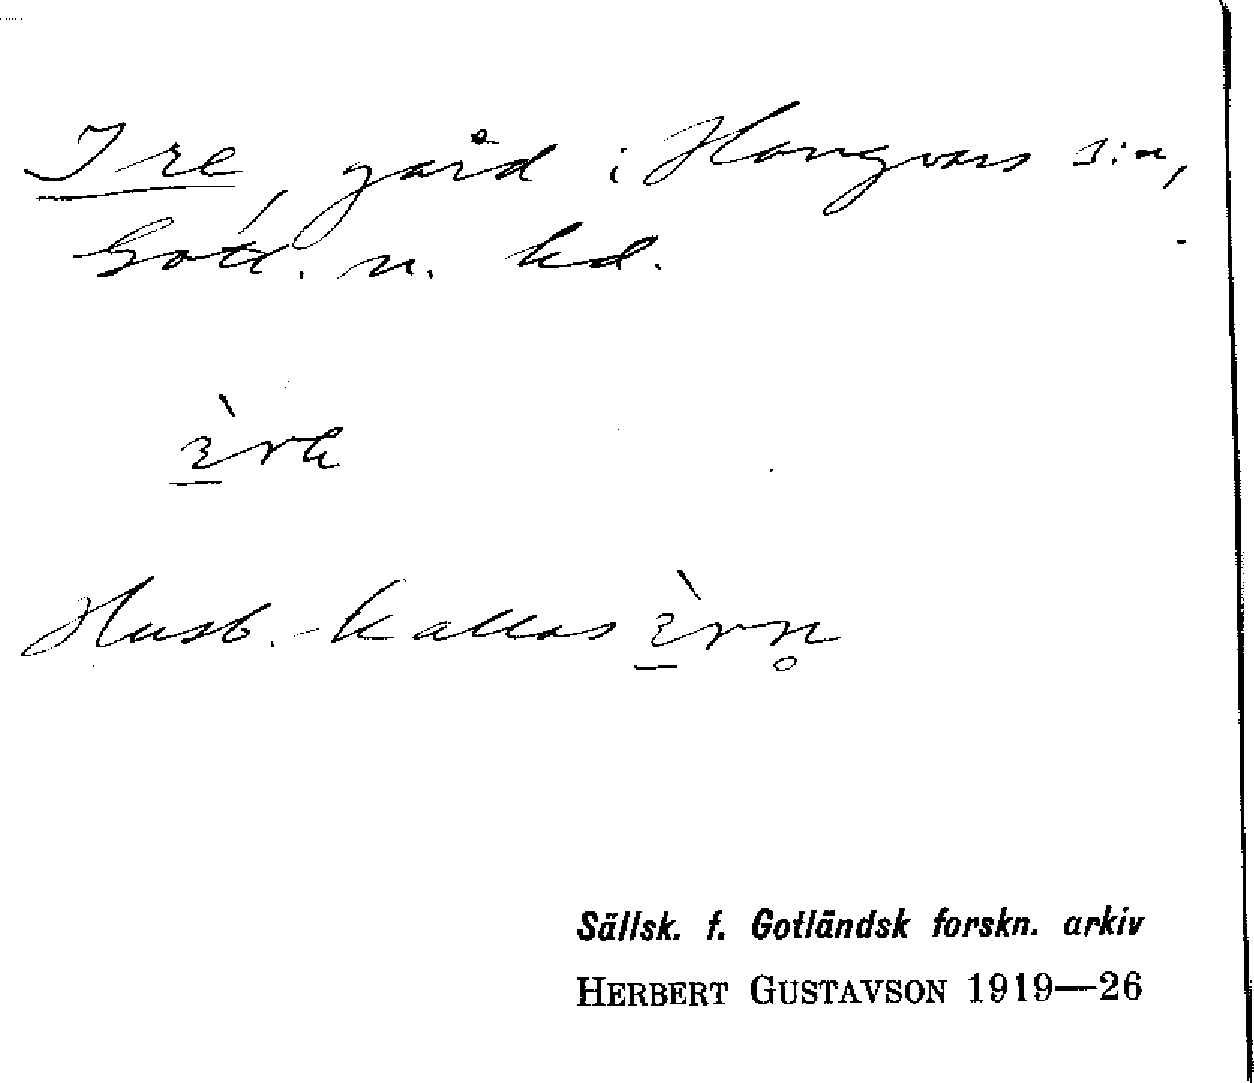 Ire, gård i Hangvars s:n,
Gotl. n. hd.
Husb. kallas
Sällsk. f. Gotländsk forskn. arkiv
HERBERT GUSTAVSON 1919—26